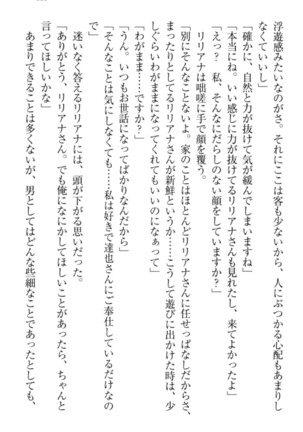 浮遊感みたいなのがさ。それにここは客も少ないから、人にぶつかる心配もあまりし
なくていいし」
「確かに、自然と力が抜けて気が緩んでしまいますね」
「本当にね。いい感じに力が抜けてるリリアナさんも見れたし、来てよかったよ」
「えっ？　私、そんなにだらしのない顔をしていますか？」
リリアナは咄嗟に手で顔を覆う。
「別にそんなことないよ。家のことはほとんどリリアナさんに任せっぱなしだからさ、
まったりとしてるリリアナさんが新鮮というか……こうして遊びに出かけた時は、少
しぐらいわがままになってくれてもいいのになぁって」
「わがまま……ですか？」
「うん。いつもお世話になってばかりなんだから」
「そんなことは気にしなくても……私は好きで達也さんにご奉仕しているだけなの
で」
迷いなく答えるリリアナには、頭が下がる思いだった。
「ありがとう、リリアナさん。でも俺になにかしてほしいことがあったら、ちゃんと
言ってほしいかな」
あまりできることは多くないが、男としてはどんな些細なことであったとしても、